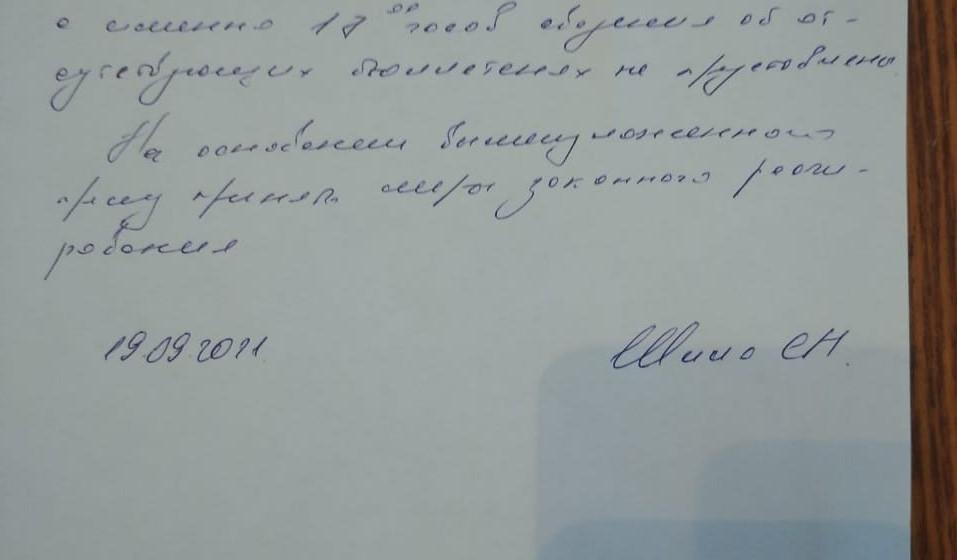 а именно 17 00 часов сведения об от-
сутствующих бюллетенях не предоставлены
На основании вышеизложенного
прошу принять меры законного реаги-
рования
19.09.2021 Шило СН.